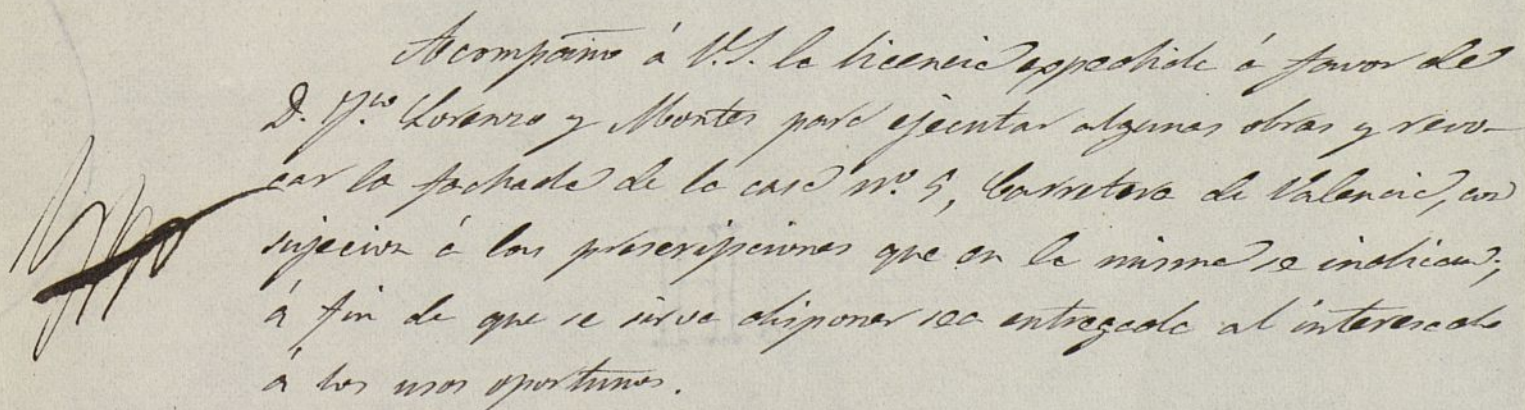 Acompaño á V.S. la licencia expedida á favor de
D. Fco Lorenzo y Montes para ejecutar algunas obras y revo-
car la fachada de la casa nº 5, Carretera de Valencia, con
sujecion á las prescripciones que en la misma se indican;
á fin de que se sirva disponer sea entregada al interesado
á los usos oportunos.